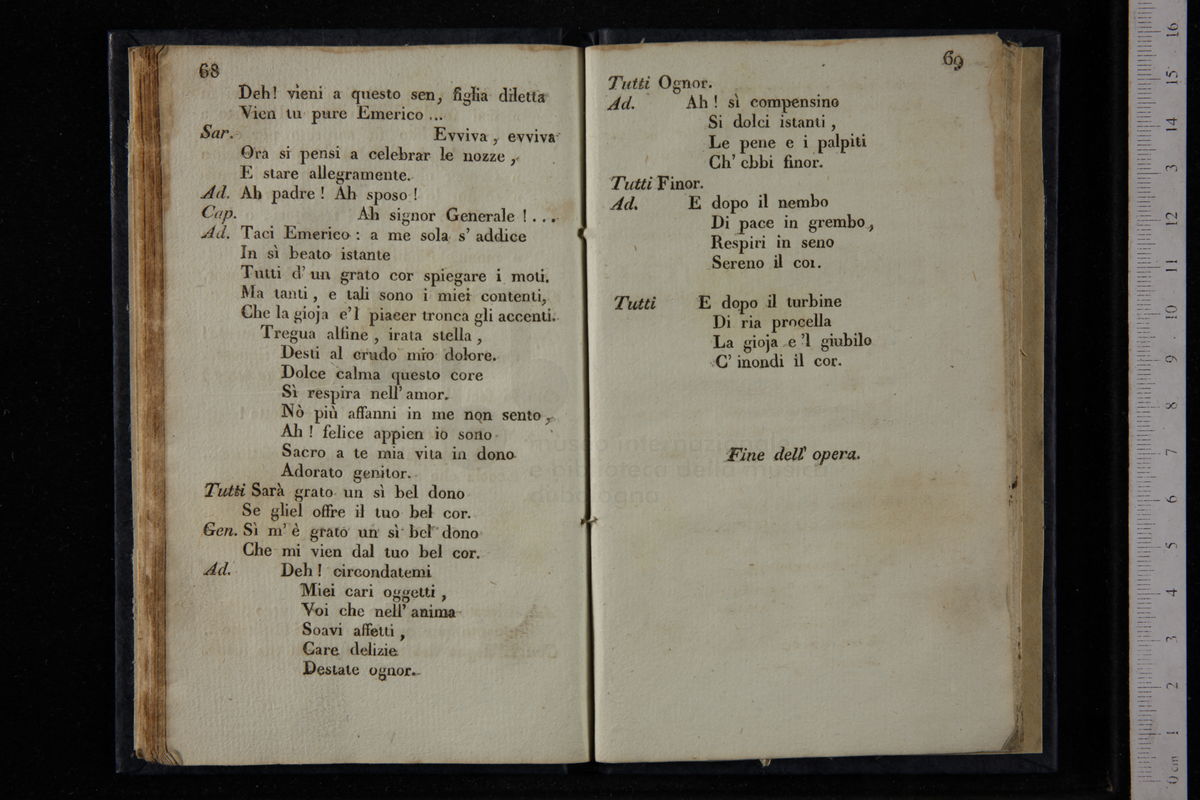 68
Deh! vieni a questo sen, figlia diletta
Vien tu pure Emerico ...
Sar. Evviva, evviva
Ora si pensi a celebrar le nozze,
E stare allegramente.
Ad. Ah padre! Ah sposo!
Cap. Ah signor Generale!...
Ad. Taci Emerico: a me sola s' addice
In sì beato istante
Tutti d' un grato cor spiegare i moti.
Ma tanti, e tali sono i miei contenti,
Che la gioja e'l piacer tronca gli accenti.
Tregua alfine, irata stella,
Desti al crudo mio dolore.
Dolce calma questo core
Sì respira nell' amor.
Nò più affanni in me non sento,
Ah! felice appien io sono
Sacro a te mia vita in dono
Adorato genitor.
Tutti Sarà grato un sì bel dono
Se gliel offre il tuo bel cor.
Gen. Sì m' è grato un sì bel dono
Che mi vien dal tuo bel cor.
Ad. Deh! circondatemi
Miei cari oggetti,
Voi che nell' anima
Soavi affetti,
Care delizie
Destate ognor.
69
Tutti Ognor.
Ad. Ah! sì compensino
Si dolci istanti,
Le pene e i palpiti
Ch' ebbi finor.
Tutti Finor.
Ad. E dopo il nembo
Di pace in grembo,
Respiri in seno
Sereno il cor.
Tutti E dopo il turbine
Di ria procella
La gioja e 'l giubilo
C' inondi il cor.
museo internazionale
e biblioteca della musica
di bologna
Fine dell' opera.
0 cm 1 2 3 4 5 6 7 8 9 10 11 12 13 14 15 16